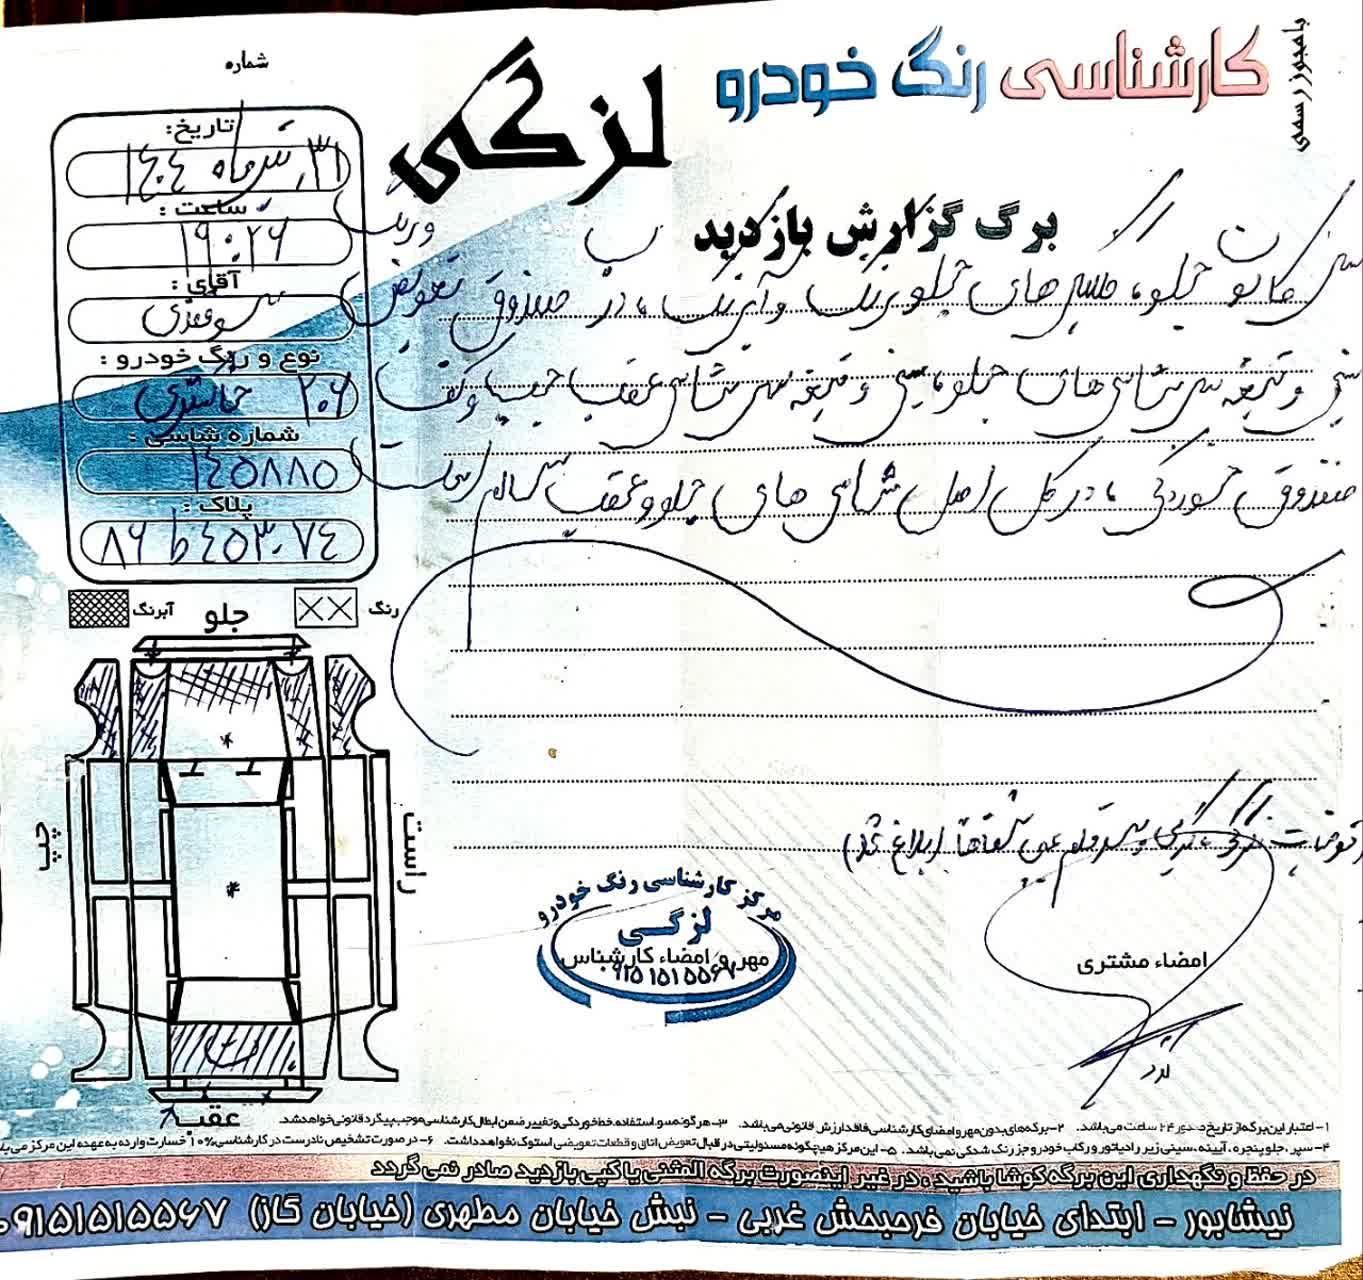 کارشناسی رنگ خودرو
با مجوز رسمی
لزگی
شماره
برگ گزارش بازدید
تاریخ:
۳۱ تیر ماه ۱۴۰۴
ساعت:
۱۹:۲۶
آقای:
نوع و رنگ خودرو:
۲۰۶ خاکستری
شماره شاسی:
۱۴۵۸۸۵
پلاک:
۸۶ ط ۴۵۳-۷۴
جلو، گلگیرهای جلو رنگ و آبرنگ، در صندوق تعویض و رنگ
سینی و تیغه سرشاسی‌های جلو، سینی و تیغه سرشاسی عقب چپ و کف
صندوق خوردگی، در کل اصل شاسی‌های جلو و عقب سالم است
رنگ
آبرنگ
جلو
چپ
راست
عقب
شفاهاً ابلاغ شد
مرکز کارشناسی رنگ خودرو
لزگی
مهر و امضاء کارشناس
۰۹۱۵۱۵۱۵۵۶۷
امضاء مشتری
۱- اعتبار این برگه از تاریخ صدور ۲۴ ساعت می‌باشد. ۲- برگه‌های بدون مهر و امضای کارشناسی فاقد ارزش قانونی می‌باشد. ۳- هر گونه سوء استفاده، خط خوردگی و تغییر ضمن ابطال کارشناسی موجب پیگرد قانونی خواهد شد.
۴- سپر، جلو پنجره، آیینه، سینی زیر رادیاتور و رکاب خودرو جز رنگ شدگی نمی‌باشد. ۵- این مرکز هیچگونه مسئولیتی در قبال تعویض اتاق و قطعات تعویضی استوک نخواهد داشت. ۶- در صورت تشخیص نادرست در کارشناسی ۱۰% خسارت وارده به عهده این مرکز می‌با
در حفظ و نگهداری این برگه کوشا باشید، در غیر اینصورت برگه المثنی یا کپی بازدید صادر نمی گردد
نیشابور - ابتدای خیابان فرحبخش غربی - نبش خیابان مطهری (خیابان گاز) ۰۹۱۵۱۵۱۵۵۶۷